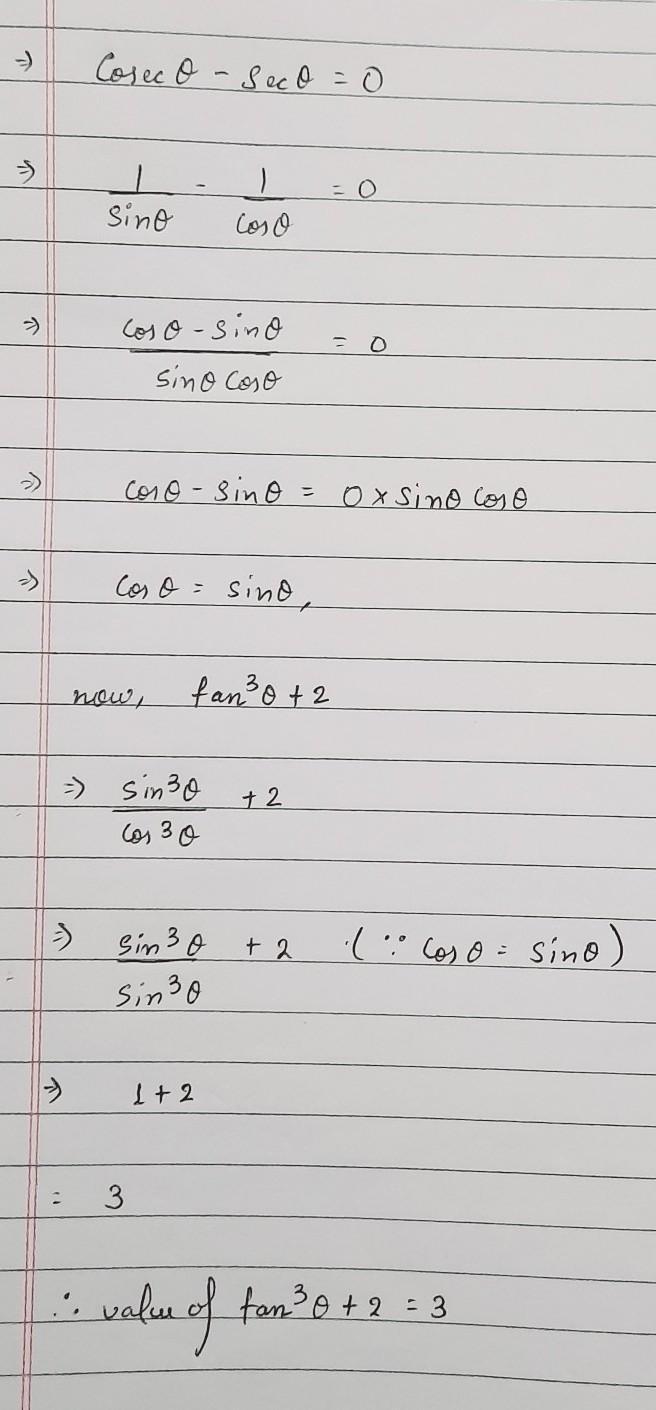 ⇒ Cosec θ - Sec θ = 0
⇒ 1/Sinθ - 1/Cosθ = 0
⇒ (Cosθ - Sinθ)/(Sinθ Cosθ) = 0
⇒ Cosθ - Sinθ = 0 × Sinθ Cosθ
⇒ Cosθ = Sinθ,
now, tan³θ + 2
⇒ Sin³θ/Cos³θ + 2
⇒ Sin³θ/Sin³θ + 2 (∵ Cosθ = Sinθ)
⇒ 1 + 2
= 3
∴ value of tan³θ + 2 = 3